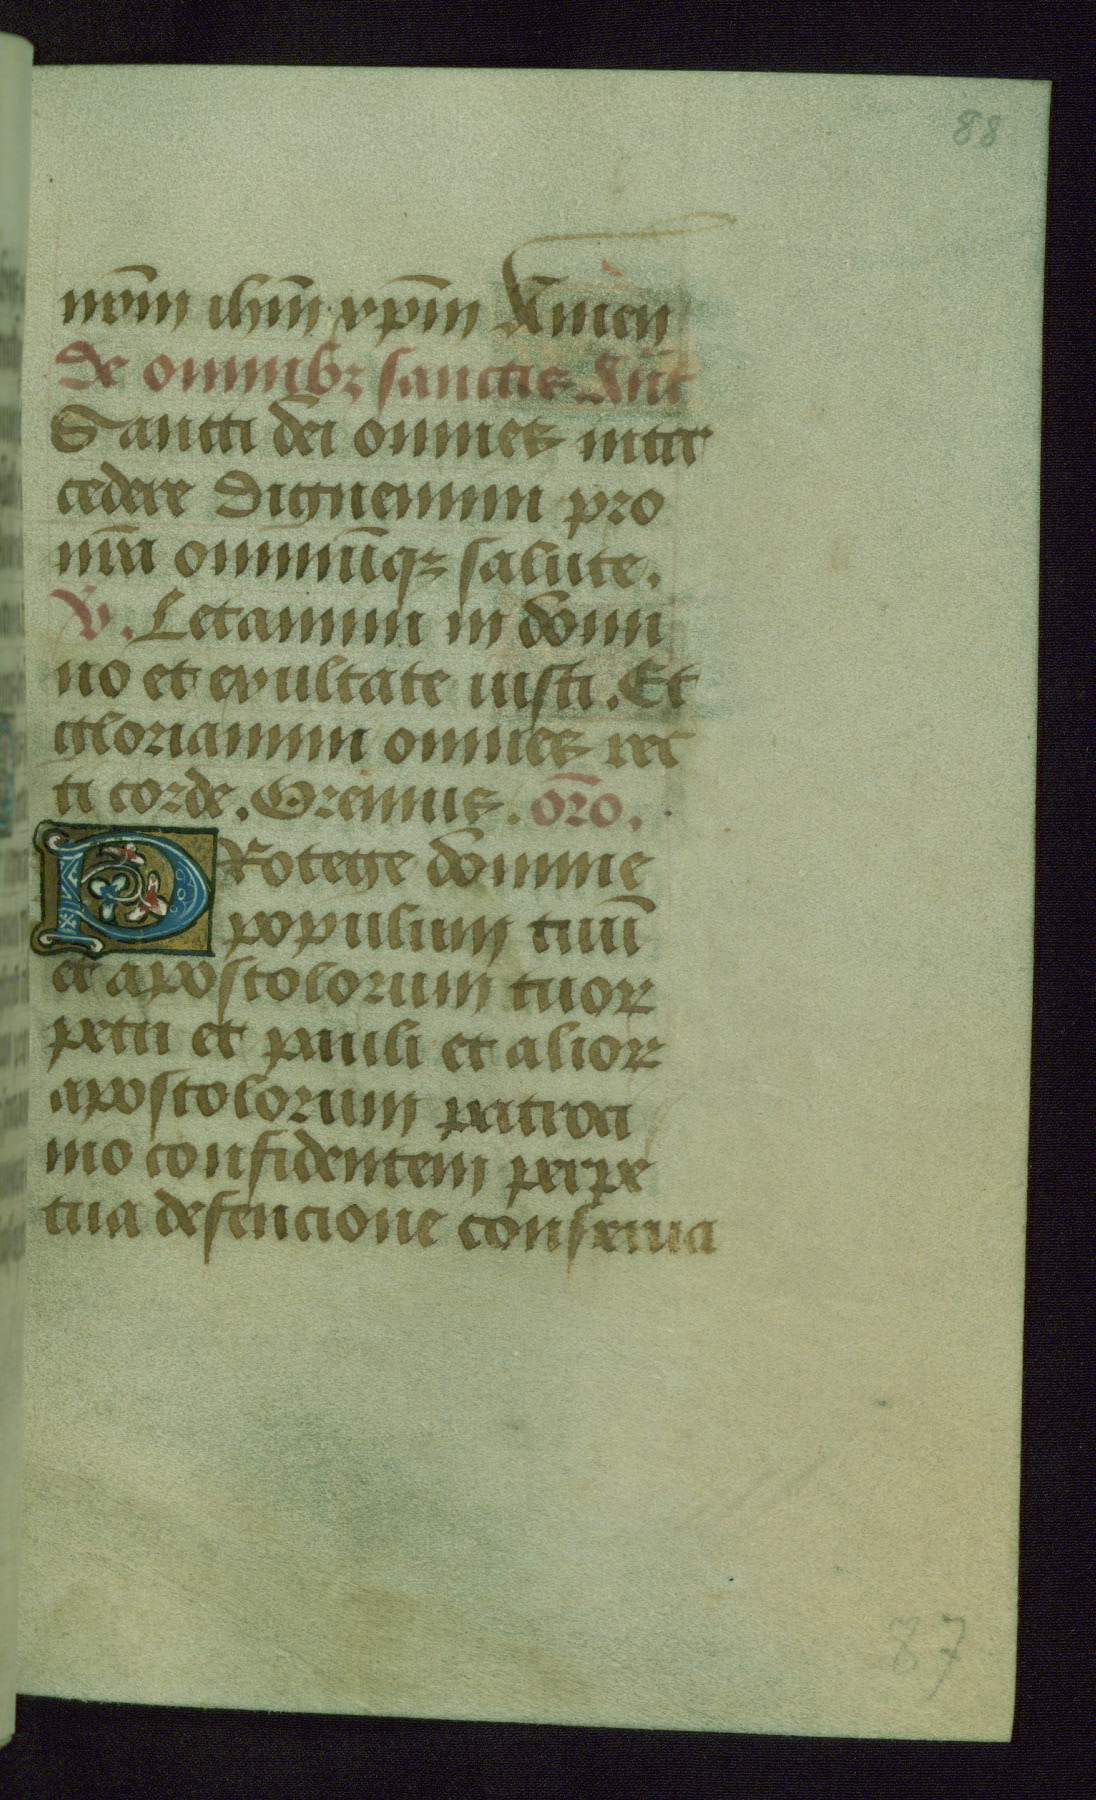 88
nr̄m ih̄m xp̄m Amen
de omnibꝫ sanctis Añt
Sancti dei omnes inter
cedere dignemini pro
nr̄a omniūqꝫ salute.
V̄. Letamini in domi
no et exultate iusti. Et
gloriamini omnes rec
ti corde. Oremus. or̄o.
PRotege domine
populum tuū
et apostolorum tuoꝝ
petri et pauli et alioꝝ
apostolorum patroci
nio confidentem perpe
tua defencione conserua
87